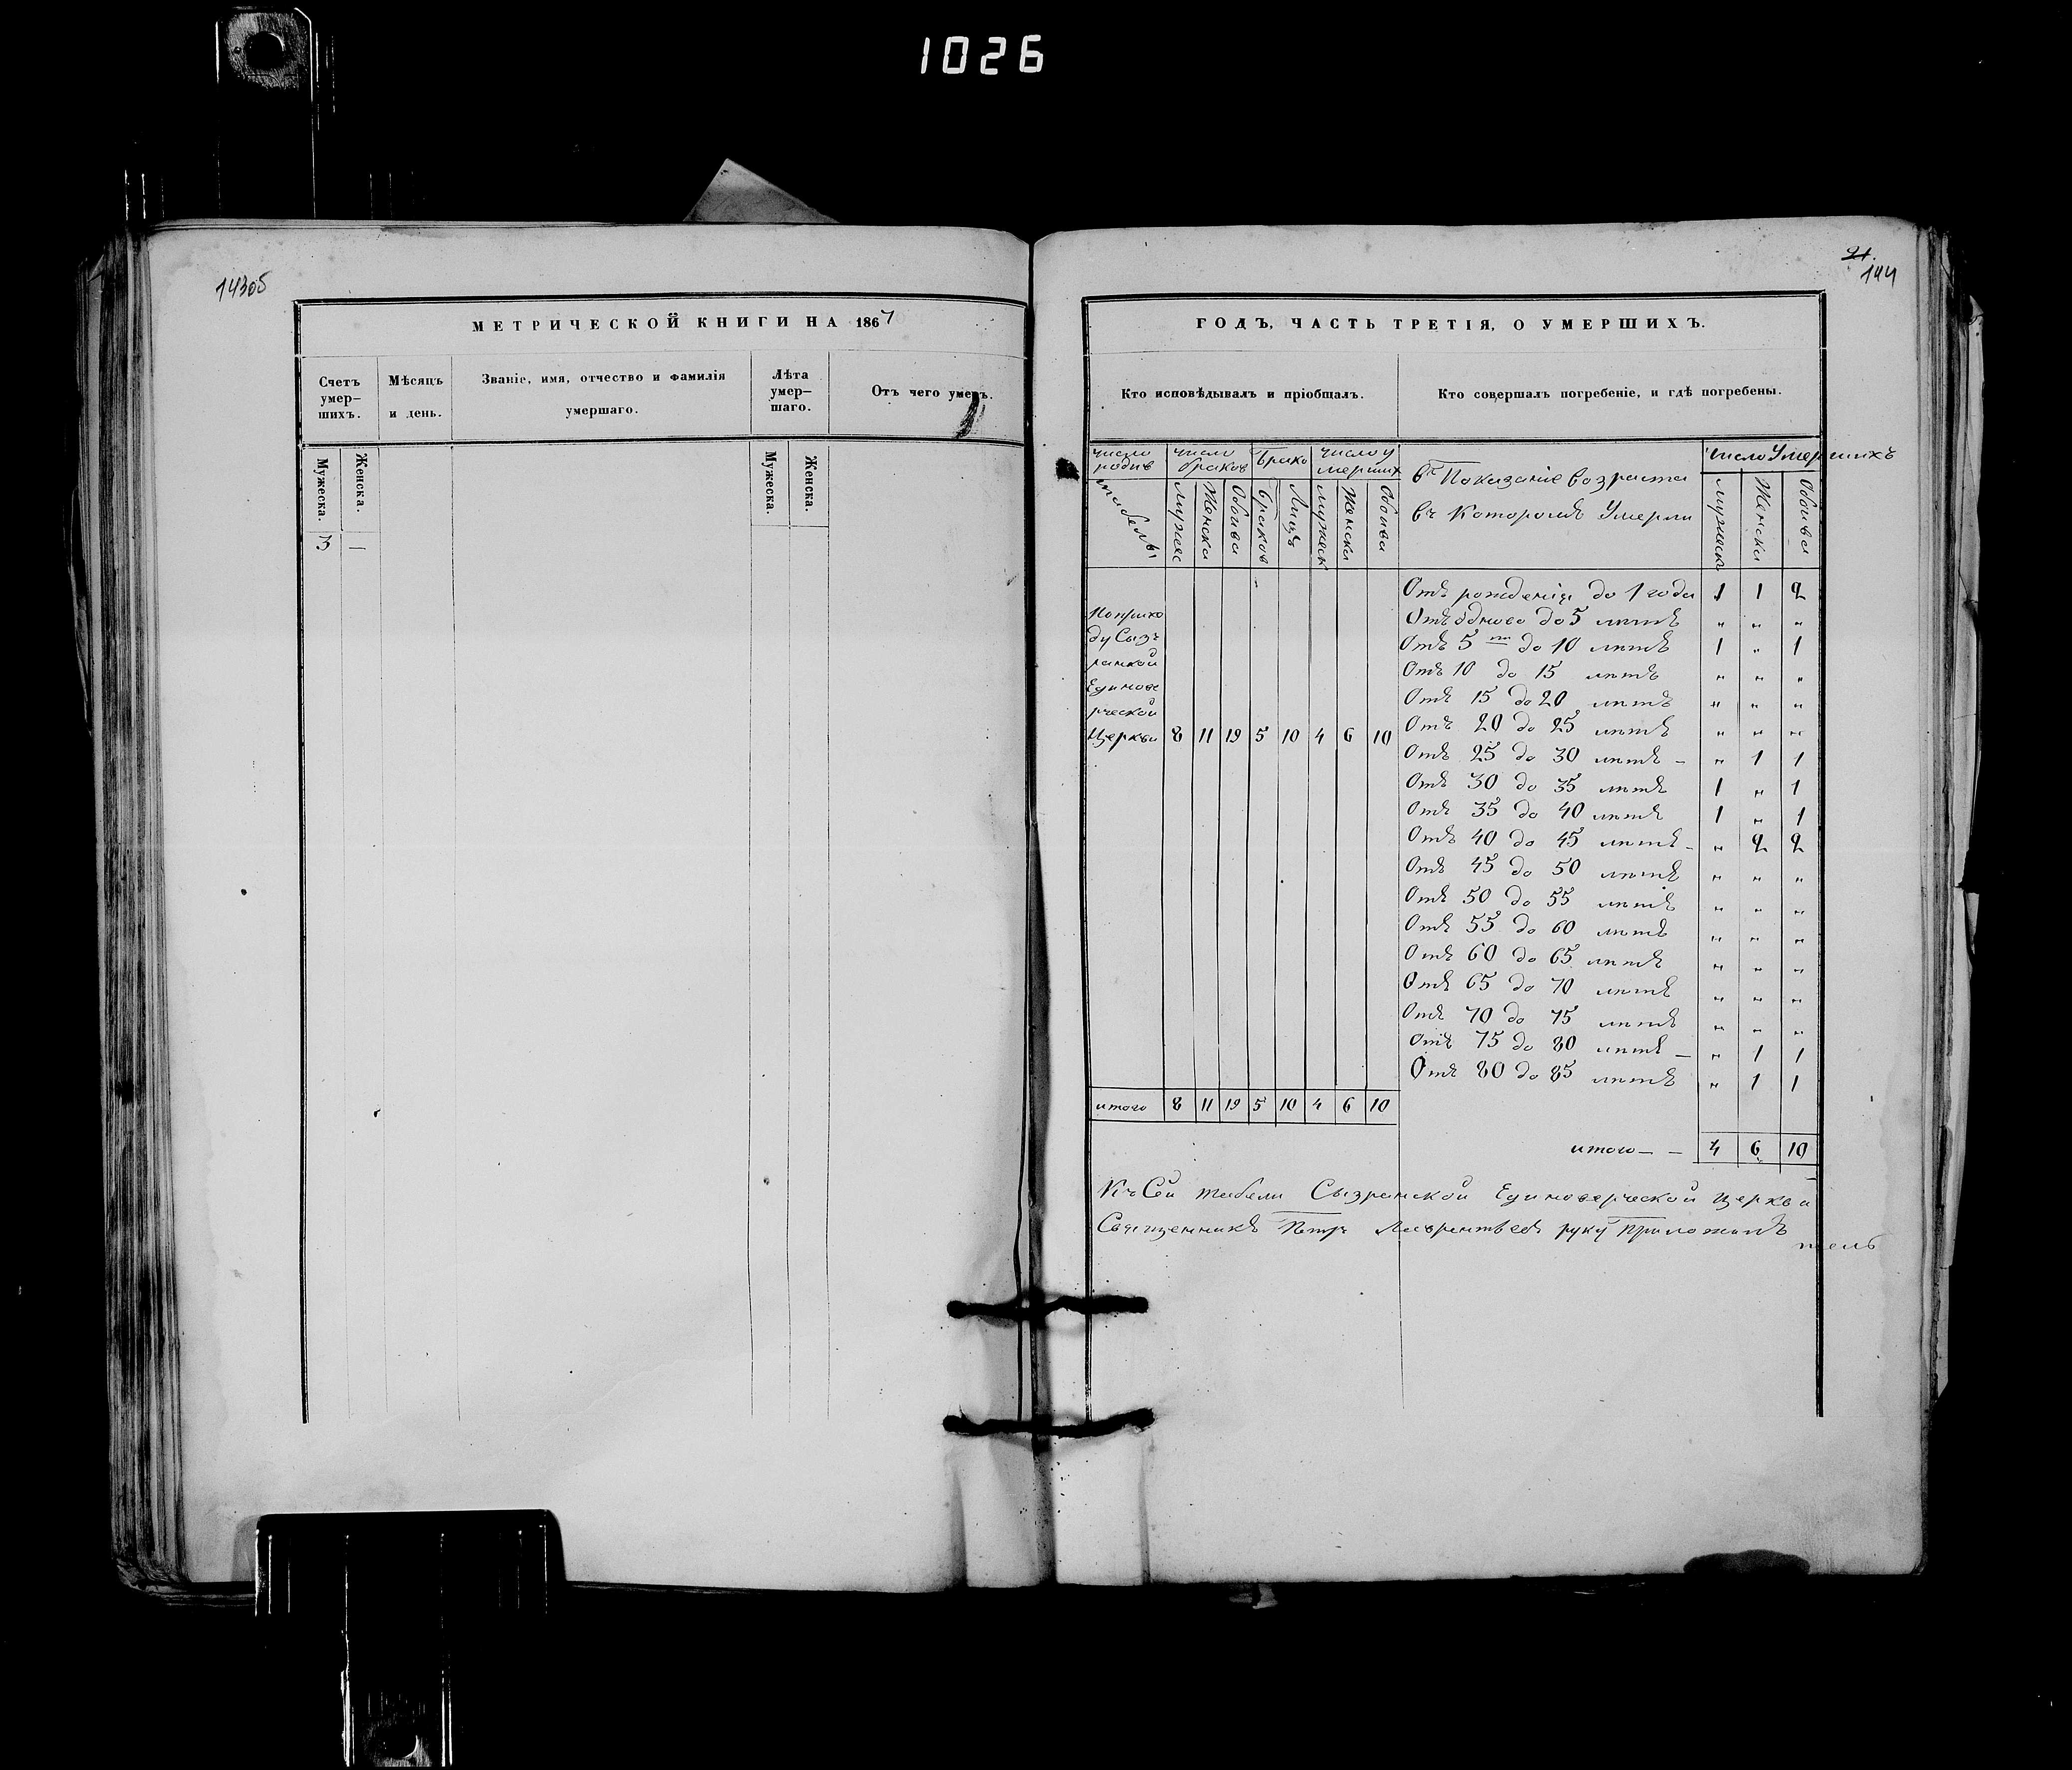 1026
143об
МЕТРИЧЕСКОЙ КНИГИ НА 1867
Счетъ умер-
шихъ.
Мѣсяцъ
и день.
Званіе, имя, отчество и фамилія
умершаго.
Лѣта
умер-
шаго.
Отъ чего умеръ.
Мужеска.
Женска.
Мужеска.
Женска.
3 —
21.
144
ГОДЪ, ЧАСТЬ ТРЕТІЯ, О УМЕРШИХЪ.
Кто исповѣдывалъ и пріобщалъ.
Кто совершалъ погребеніе, и гдѣ погребены.
число
родив
число
браков
Брако
число у
мерших
Мужес
Женска
Обоива
Браков
Лицъ
Мужеск
Женска
Обоива
въ Показаніе возраста
въ Которомъ Умерли
Число Умершихъ
Мужеск
Женска
Обоива
По прихо
ду Сыз
ранкой
Единове
рческой
Церкви 8 11 19 5 10 4 6 10
Отъ рожденія до 1 года 1 1 2
Отъ одново до 5 летъ " " "
Отъ 5 ти до 10 летъ 1 " 1
Отъ 10 до 15 летъ " " "
Отъ 15 до 20 летъ " " "
Отъ 20 до 25 летъ " " "
Отъ 25 до 30 летъ – " 1 1
Отъ 30 до 35 летъ 1 " 1
Отъ 35 до 40 летъ 1 " 1
Отъ 40 до 45 летъ – " 2 2
Отъ 45 до 50 летъ " " "
Отъ 50 до 55 летъ " " "
Отъ 55 до 60 летъ " " "
Отъ 60 до 65 летъ " " "
Отъ 65 до 70 летъ " " "
Отъ 70 до 75 летъ " " "
Отъ 75 до 80 летъ – " 1 1
Отъ 80 до 85 летъ " 1 1
итого 8 11 19 5 10 4 6 10
итого – – 4 6 10
Къ Сей табели Сызранской Единоверческой церкви
Священникъ Петръ Лаврентьевъ руку приложилъ